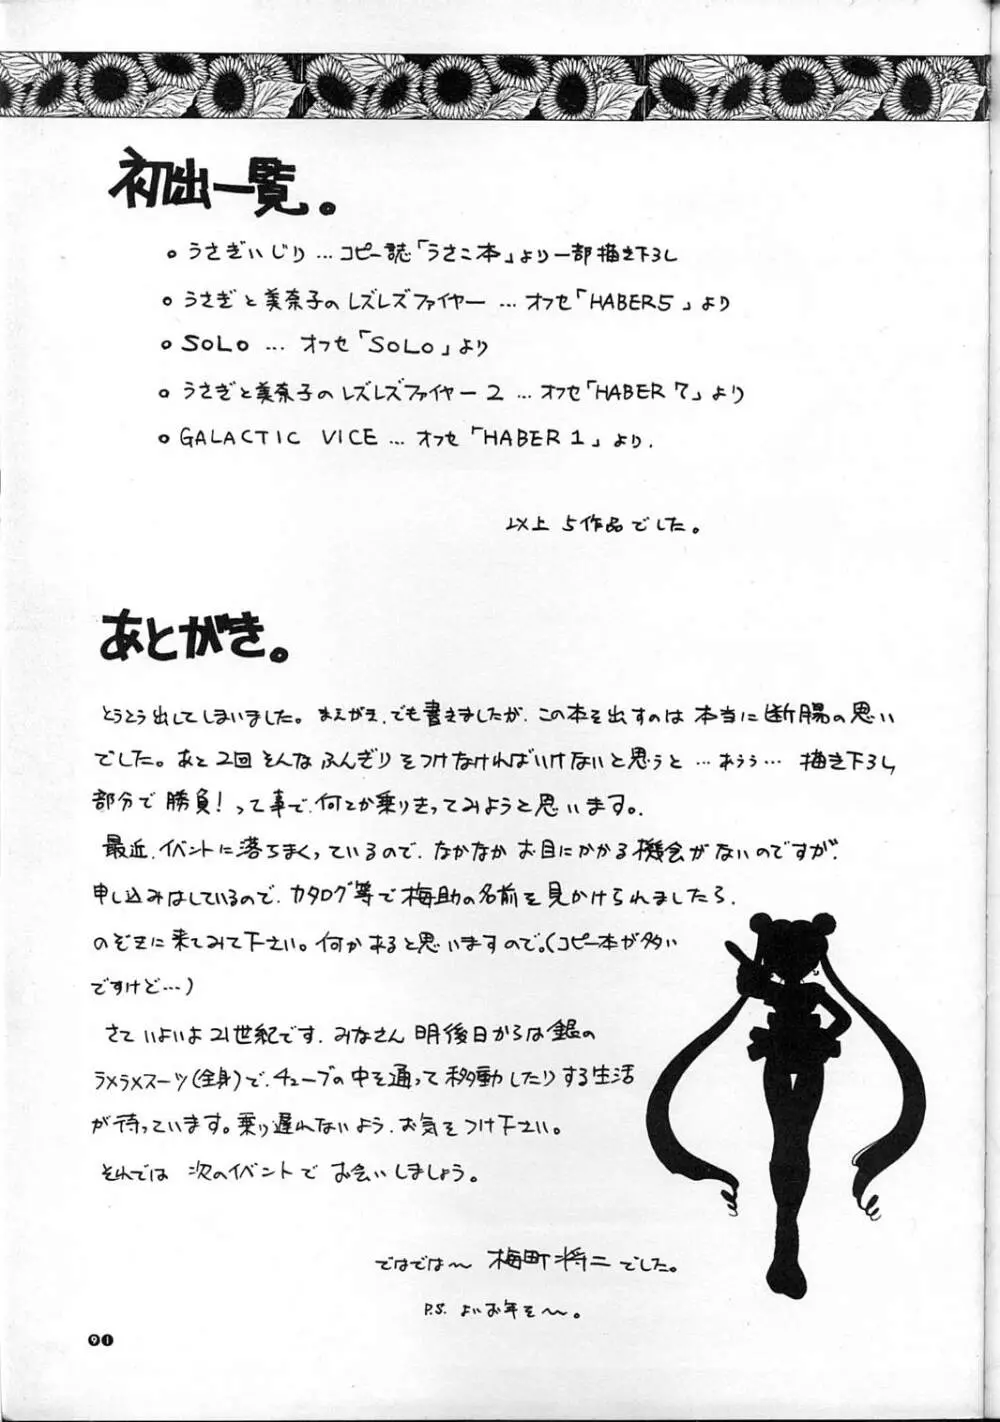 初出一覧。
○うさぎいじり…コピー誌「うさこ本」より一部描き下ろし
○うさぎと美奈子のレズレズファイヤー…オフセ「HABER5」より
○SOLO…オフセ「SOLO」より
○うさぎと美奈子のレズレズファイヤー2…オフセ「HABER7」より
○GALACTIC VICE…オフセ「HABER1」より.
以上 5作品でした。
あとがき。
とうとう出してしまいました。まえがき.でも書きましたが.この本を出すのは 本当に断腸の思い
でした。あと2回そんなふんぎりをつけなければいけないと思うと…あうぅ… 描き下ろし
部分で 勝負!って事で.何とか乗りきってみようと思います。
最近.イベントに落ちまくっているので.なかなか お目にかかる機会がないのですが.
申し込みはしているので.カタログ等で梅助の名前を見かけられましたら.
のぞきに来てみて下さい。何かあると思いますので。(コピー本が多い
ですけど…)
さて いよいよ21世紀です.みなさん 明後日からは銀の
ラメラメスーツ(全身)で.チューブの中を通って移動したりする生活
が待っています。乗り遅れないよう.お気をつけ下さい。
それでは 次のイベントで お会いしましょう。
ではでは〜 梅町将二でした。
P.S. よいお年を〜。
91